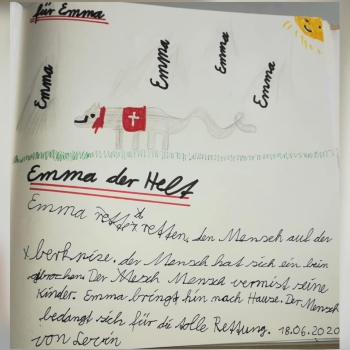 für Emma
Emma
Emma
Emma
Emma
Emma der Helf
Emma rettet retten, den Mensch auf der
x berkpise. der Mensch hat sich ein bein
gbrochen. Der Mesch Mensch vermist seine
Kinder. Emma bringt hin nach Hause. Der Mensch
bedangt sich für die tolle Rettung. 18.06.2020
von